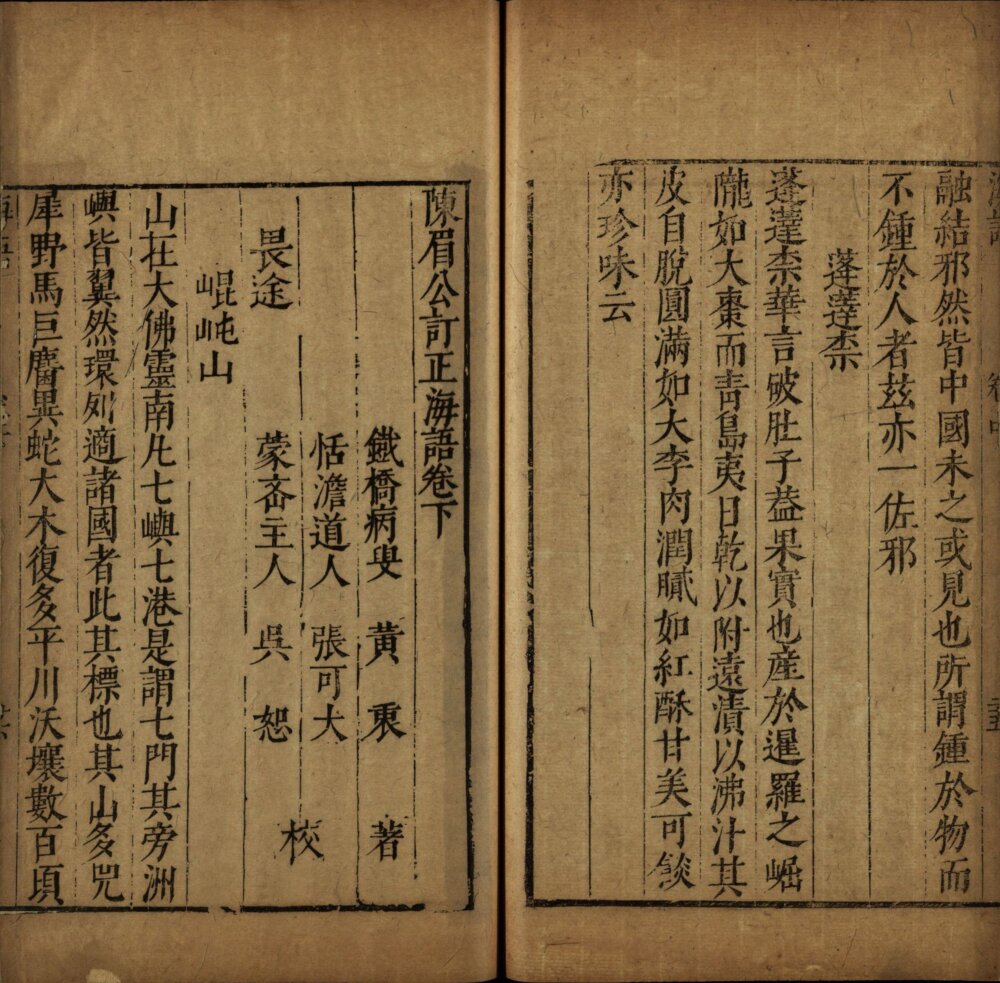 融結邪然皆中國未之或見也所謂鍾於物而
不鍾於人者茲亦一佐邪
蓬蓬柰
蓬蓬柰華言破肚子葢果實也產於暹羅之崛
隴如大棗而靑島夷日乾以附遠漬以沸汁其
皮自脫圓滿如大李肉潤膩如紅酥甘美可餤
亦珍味云
陳眉公訂正海語卷下
鐵橋病叟 黃衷 著
恬澹道人 張可大
蒙斎主人 吳恕 校
畏途
崐屯山
山在大佛靈南凢七嶼七港是謂七門其旁洲
嶼皆翼然環列適諸國者此其標也其山多咒
犀野馬巨麐異蛇大木復多平川沃壤數百頃